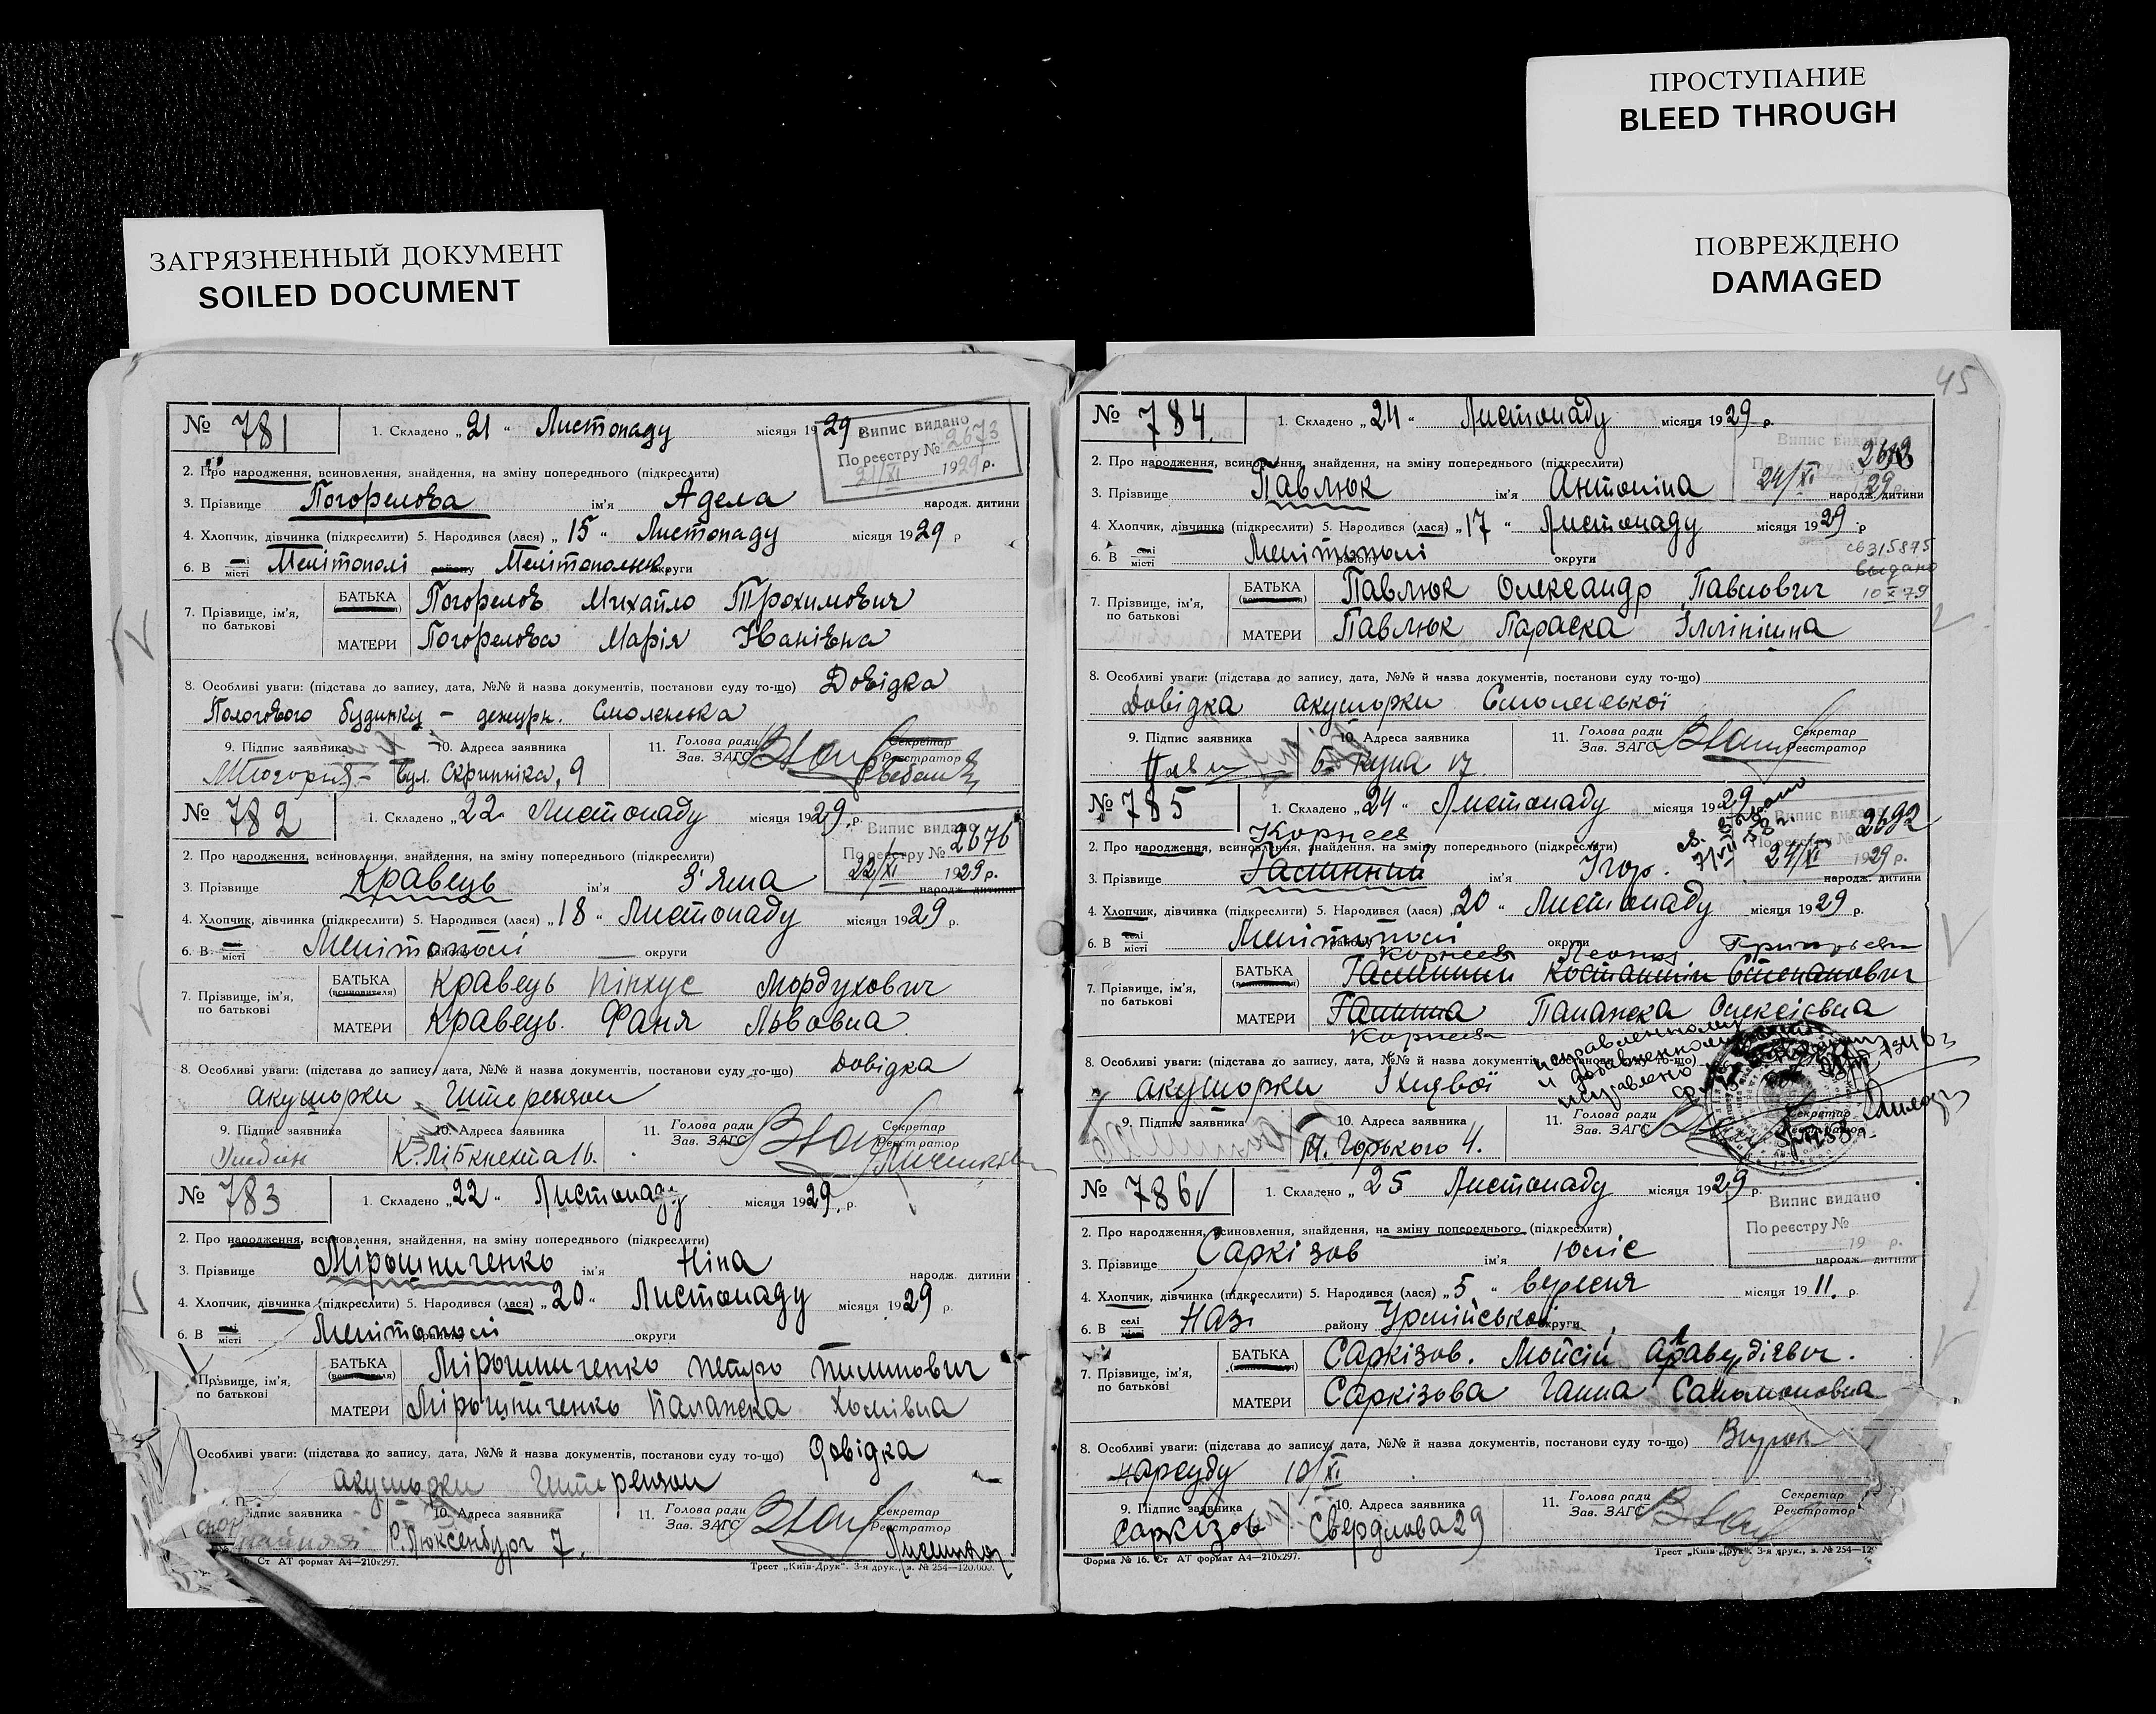 ПРОСТУПАНИЕ
BLEED THROUGH
ПОВРЕЖДЕНО
DAMAGED
ЗАГРЯЗНЕННЫЙ ДОКУМЕНТ
SOILED DOCUMENT
№ 781 1. Складено „ 21 “ Листопаду місяця 1929
Випис видано
По реєстру № 2673
21/XI 1929 р.
2. Про народження, всиновлення, знайдення, на зміну попереднього (підкреслити)
3. Прізвище Погорелова ім'я Адела народж. дитини
4. Хлопчик, дівчинка (підкреслити) 5. Народився (лася) „ 15 “ Листопаду місяця 1929 р
6. В місті Мелітополі району Мелітопольск. округи
7. Прізвище, ім'я, по батькові
БАТЬКА Погорелов Михайло Трохимович
МАТЕРИ Погорелова Марія Іванівна
8. Особливі уваги: (підстава до запису, дата, №№ й назва документів, постанови суду то-що) Довідка
Пологового будинку – дежурн. Смоленська
9. Підпис заявника 10. Адреса заявника 11. Голова ради Зав. ЗАГС Секретар Реєстратор
вул. Скрипніка, 9
№ 782 1. Складено „ 22 Листопаду місяця 1929. р.
Випис видано
По реєстру № 2676
22/XI 1929 р.
2. Про народження, всиновлення, знайдення, на зміну попереднього (підкреслити)
3. Прізвище Кравець ім'я З'яма народж. дитини
4. Хлопчик, дівчинка (підкреслити) 5. Народився (лася) „ 18 “ Листопаду місяця 1929 р.
6. В місті Мелітополі району округи
7. Прізвище, ім'я, по батькові
БАТЬКА (всиновителя) Кравець Пінхус Мордухович
МАТЕРИ Кравець. Фаня Львовна
8. Особливі уваги: (підстава до запису, дата, №№ й назва документів, постанови суду то-що) Довідка
акушорки Штерензон
9. Підпис заявника 10. Адреса заявника 11. Голова ради Зав. ЗАГС Секретар Реєстратор
К. Лібкнехта 16.
№ 783 1. Складено „ 22 “ Листопаду місяця 1929. р.
2. Про народження, всиновлення, знайдення, на зміну попереднього (підкреслити)
3. Прізвище Мірошниченко ім'я Ніна народж. дитини
4. Хлопчик, дівчинка (підкреслити) 5. Народився (лася) „ 20 “ Листопаду місяця 1929 р.
6. В місті Мелітополі району округи
Прізвище, ім'я, по батькові
БАТЬКА Мірошниченко Петро Пилипович
МАТЕРИ Мірошниченко Паланска Хомівна
Особливі уваги: (підстава до запису, дата, №№ й назва документів, постанови суду то-що) Довідка
акушорки Штерензон
підпис заявника 10. Адреса заявника 11. Голова ради Зав. ЗАГС Секретар Реєстратор
Р. Люксенбург 7.
Ст АТ формат А4—210х297. Трест „Київ-Друк“. 3-я друк., з. № 254—120.000.
45
№ 784. 1. Складено „ 24 “ Листопаду місяця 1929 р.
Випис видано
24/XI 29
2. Про народження, всиновлення, знайдення, на зміну попереднього (підкреслити)
3. Прізвище Павлюк ім'я Антоніна народж. дитини
4. Хлопчик, дівчинка (підкреслити) 5. Народився (лася) „ 17 “ Листопаду місяця 1929 р
6. В селі місті Мелітополі району округи
св 315875
выдано
10 X 79
7. Прізвище, ім'я, по батькові
БАТЬКА Павлюк Олександр Павлович
МАТЕРИ Павлюк Параска Іллінішна
8. Особливі уваги: (підстава до запису, дата, №№ й назва документів, постанови суду то-що)
Довідка акушорки Смоленської
9. Підпис заявника 10. Адреса заявника 11. Голова ради Зав. ЗАГС Секретар Реєстратор
Б. Куна 17.
№ 785 1. Складено „ 24 “ Листопаду місяця 1929
Випис видано
По реєстру № 2692
24/XI 1929 р.
Корнеев
2. Про народження, всиновлення, знайдення, на зміну попереднього (підкреслити)
3. Прізвище ім'я Ігор. народж. дитини
4. Хлопчик, дівчинка (підкреслити) 5. Народився (лася) „ 20 “ Листопаду місяця 1929 р.
6. В селі місті Мелітополі району округи
Корнеев Леонид Григорьев
7. Прізвище, ім'я, по батькові
БАТЬКА Костантін Степанович
МАТЕРИ Паланска Олексієвна
Корнеева
8. Особливі уваги: (підстава до запису, дата, №№ й назва документів, постанови суду то-що)
исправленному
и добавленному
исправлено
акушорки
9. Підпис заявника 10. Адреса заявника 11. Голова ради Зав. ЗАГС Секретар Реєстратор
М. Горького 4.
№ 786 1. Складено „ 25 Листопаду місяця 1929 р.
Випис видано
По реєстру №
19 р.
2. Про народження, всиновлення, знайдення, на зміну попереднього (підкреслити)
3. Прізвище Саркізов ім'я Юліс народж. дитини
4. Хлопчик, дівчинка (підкреслити) 5. Народився (лася) „ 5 “ вересня місяця 1911. р.
6. В селі місті Назі району Урмійської округи
7. Прізвище, ім'я, по батькові
БАТЬКА Саркізов. Мойсій
МАТЕРИ Саркізова Ганна Саломоновна
8. Особливі уваги: (підстава до запису, дата, №№ й назва документів, постанови суду то-що) Вирок
Нарсуду 19/XI
9. Підпис заявника 10. Адреса заявника 11. Голова ради Зав. ЗАГС Секретар Реєстратор
Саркізов Свердлова 29
Форма № 16. Ст АТ формат А4—210х297. Трест „Київ-Друк“. 3-я друк., з. № 254—12